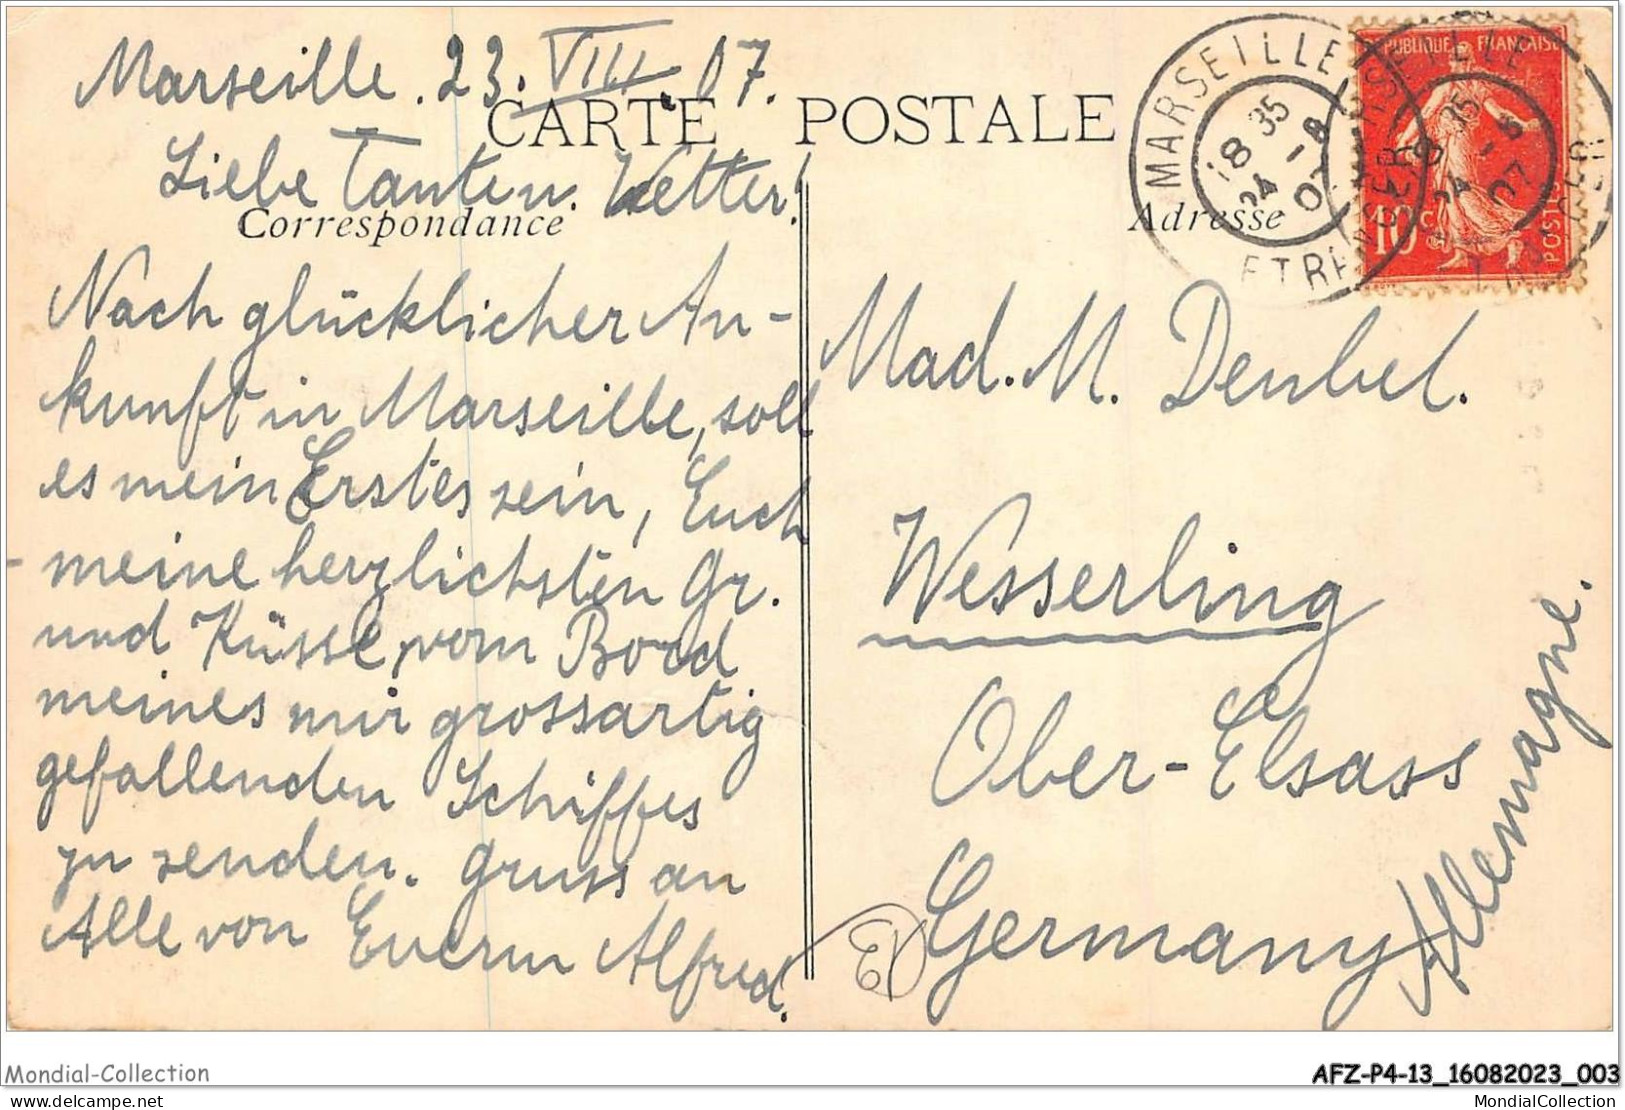 Marseille. 23. VIII. 07.
CARTE POSTALE
Liebe Tanten. Vetter!
Correspondance
Adresse
Nach glücklicher An-
kunft in Marseille, soll
es mein Erstes sein, Euch
meine herzlichsten Gr.
und Küsse, vom Bord
meines mir grossartig
gefallenden Schiffes
zu senden. Gruss an
Alle von Euerm Alfred.
Mad. M. Denbel.
Wesserling
Ober-Elsass
Germany
Allemagne.
MARSEILLE
18 35
24 -8
07
ETRANGER
RÉPUBLIQUE FRANÇAISE
10 c.
POSTES
Mondial-Collection
AFZ-P4-13_16082023_003
delcampe.net
MondialCollection